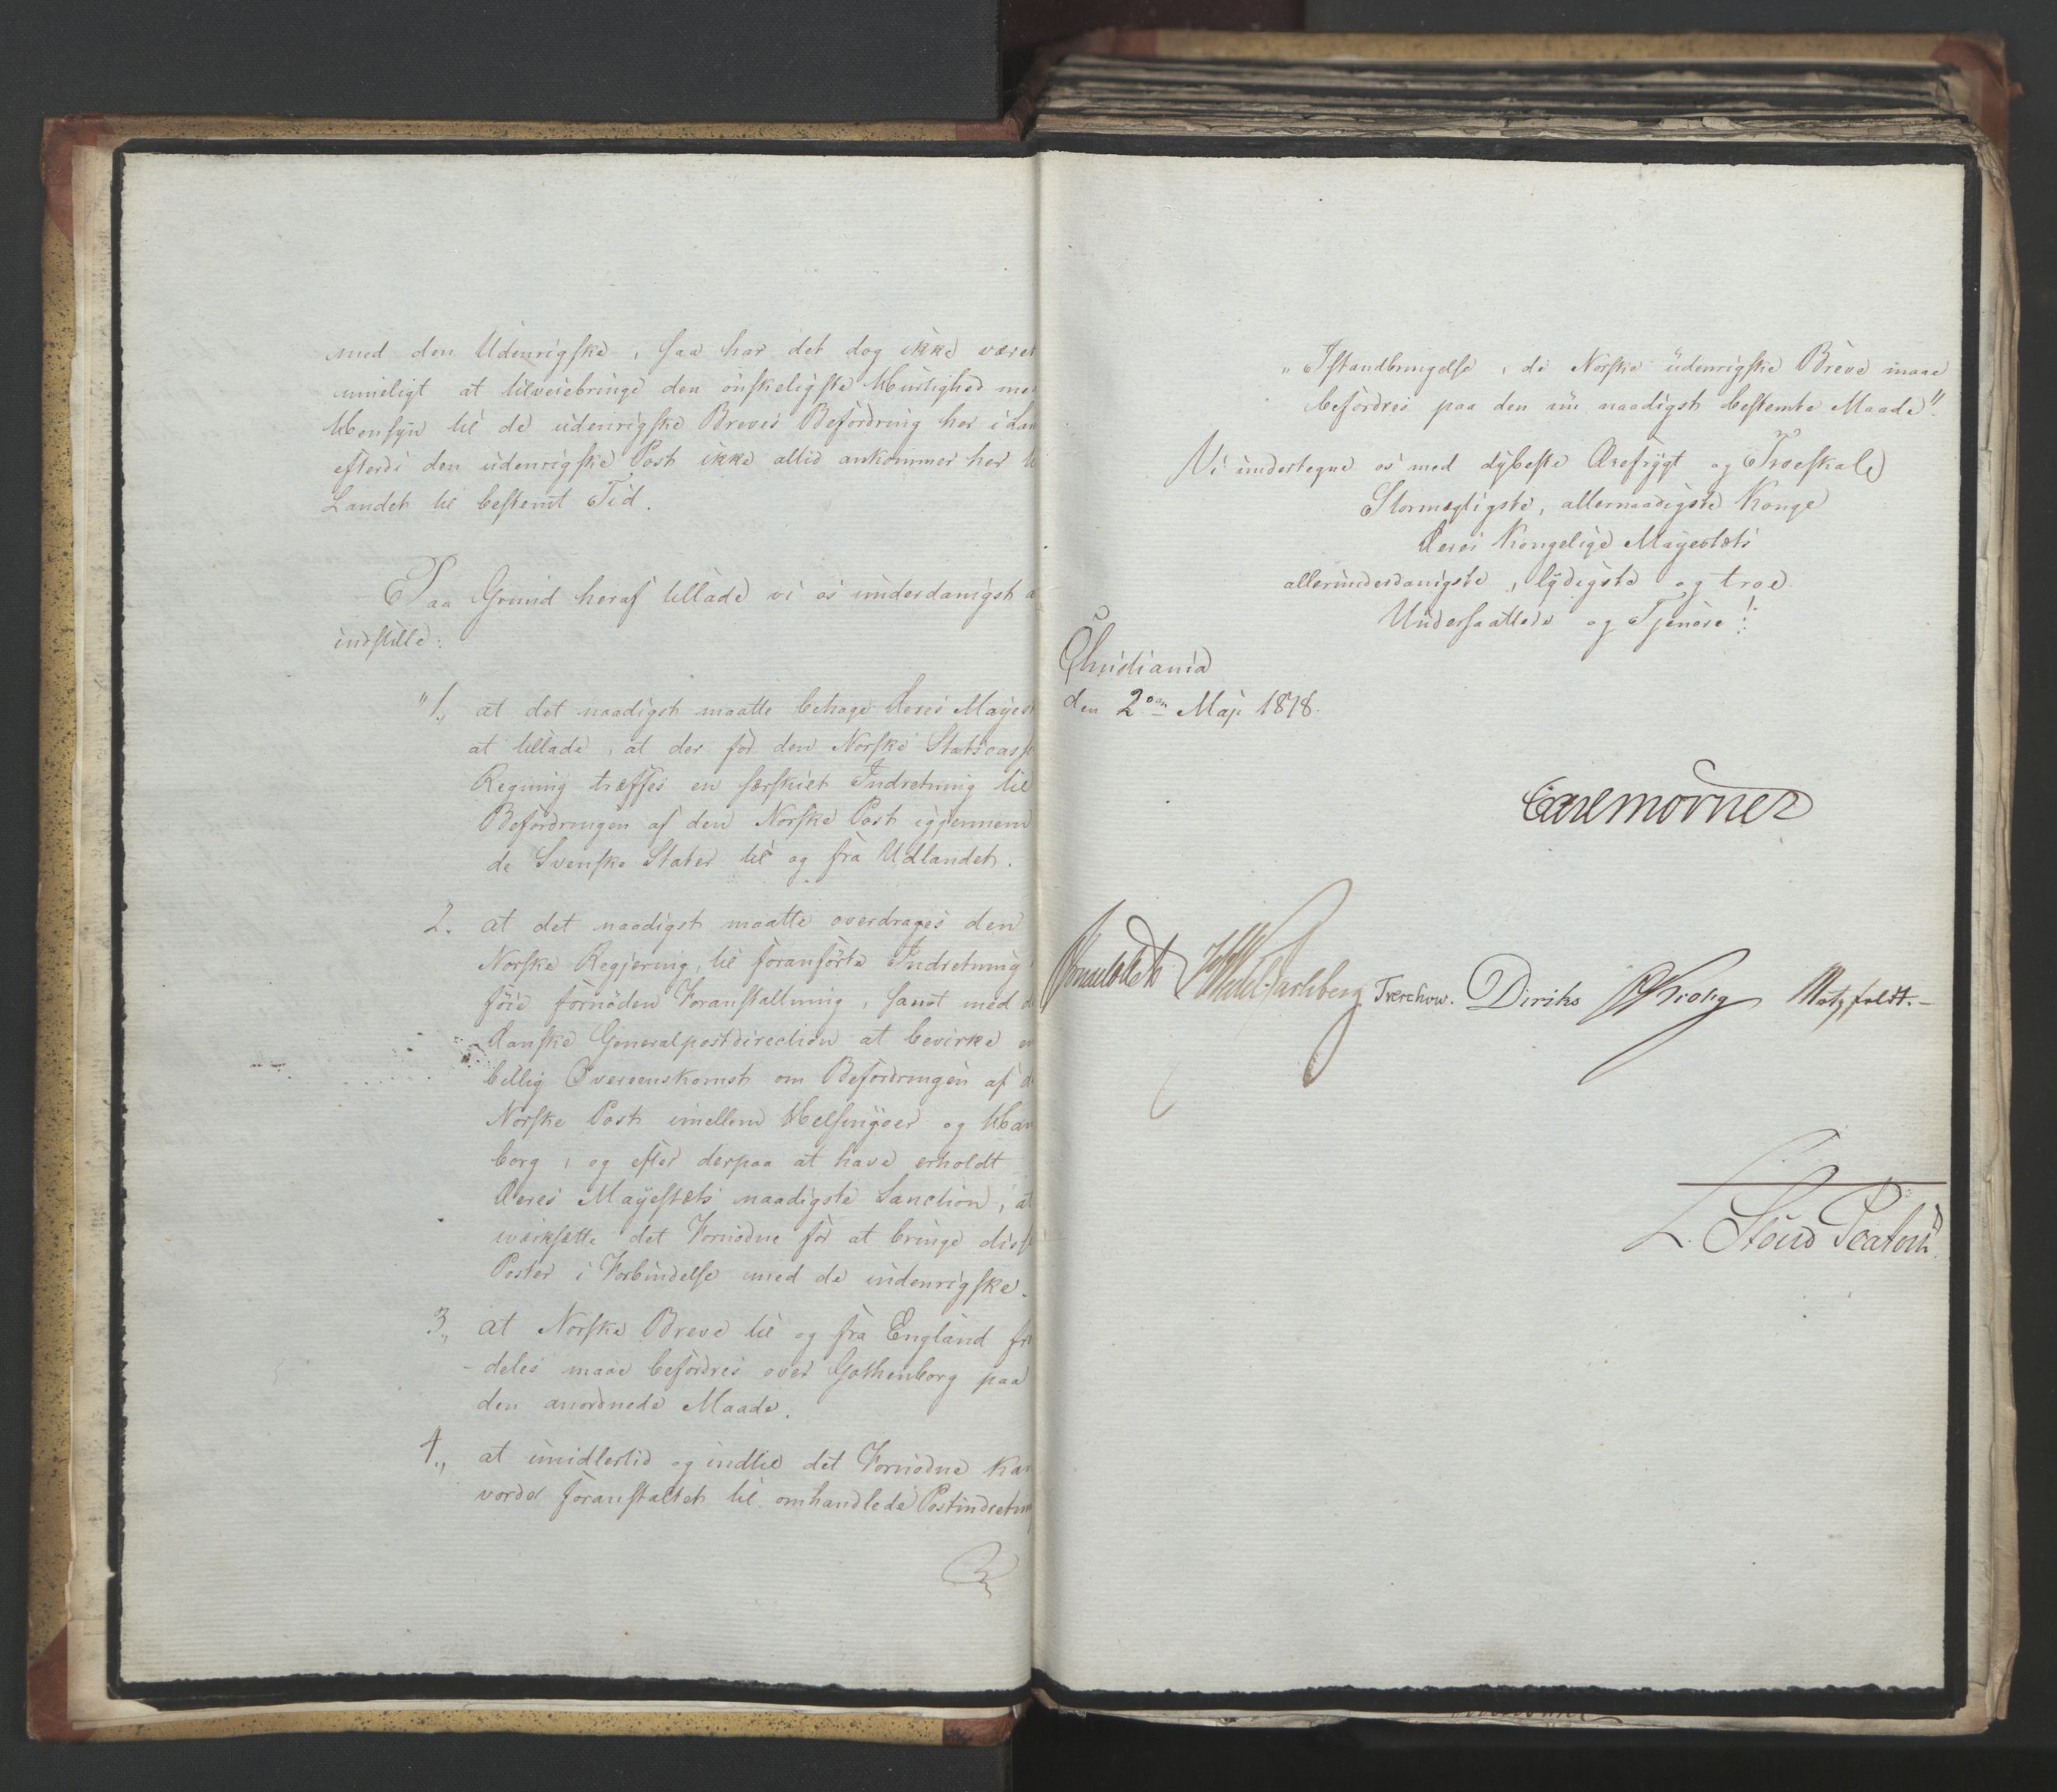 med den Udenrigske, saa har det dog ikke været
mueligt at tilveiebringe den önskeligste Hurtighed med
Hensyn til de udenrigske Breves Befordring her i Lan
efterdi den udenrigske Post ikke altid ankommer her
Landet til bestemt Tid.
Paa Grund heraf tillade vi os underdanigst a
indstille:
"1., at det naadigst maatte behage Deres Mayes
at tillade, at der for den Norske Statscasse
Regning træffes en særskilt Indretning til
Befordringen af den Norske Post igjennem
de Svenske Stater til og fra Udlandet.
2. at det naadigst maatte overdrages den
Norske Regjering, til foranförte Indretning
föie fornöden Foranstaltning, samt med d
danske Generalpostdirection at bevirke en
billig Overeenskomst om Befordringen af d
Norske Post imellem Helsingöer og Ham
borg, og efter derpaa at have erholdt
Deres Mayestets naadigste Sanction, at
iværksætte det Fornödne for at bringe diss
Poster i Forbindelse med de udenrigske.
3., at Norske Breve til og fra England fr
-deles maae befordres over Gothenborg paa
den anordnede Maade.
4., at imidlertid og indtil det Fornödne kan
vorde foranstaltet til omhandlede Postindretn
" Istandbringelse, de Norske udenrigske Breve maae
befordres paa den nu naadigst bestemte Maade".
Vi undertegne os med dybeste Ærefrygt og Troeskab
Stormægtigste, allernaadigste Konge
Deres Kongelige Mayestets
allerunderdanigste, lydigste og troe
Undersaatter og Tjenere!
Christiania
den 2den Maji 1818.
Carl Mörner
Sommerfeldt Wedel-Jarlsberg Treschow. Diriks Krohg Motzfeldt.-
L. Stoud Platou